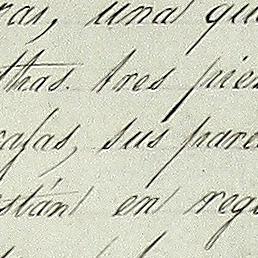 ras, una qu
thas. tres pie
afas, sus pare
stán en regu